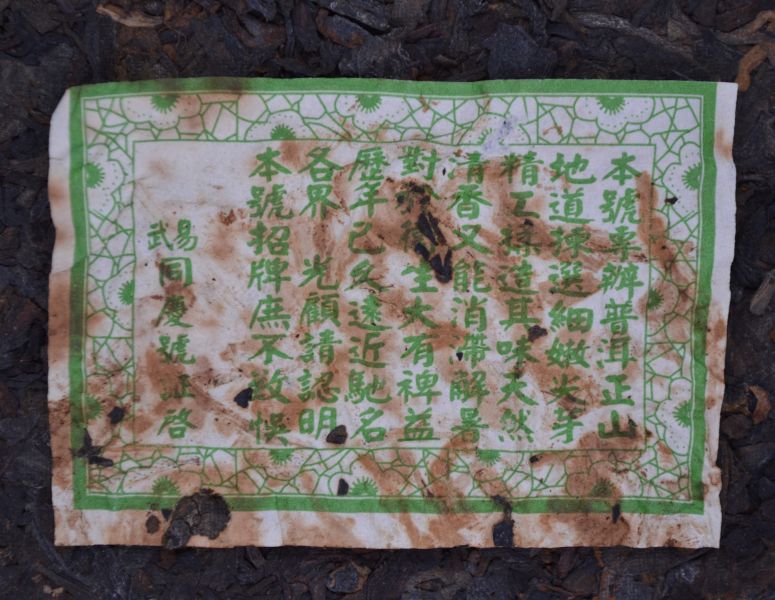 本號專辦普洱正山
地道揀選細嫩尖芽
精工造其味天然
清香又能消滯解暑
對於生大有裨益
歷年已久遠近馳名
各界 光顧請認明
本號招牌庶不致悞
易武同慶號啓